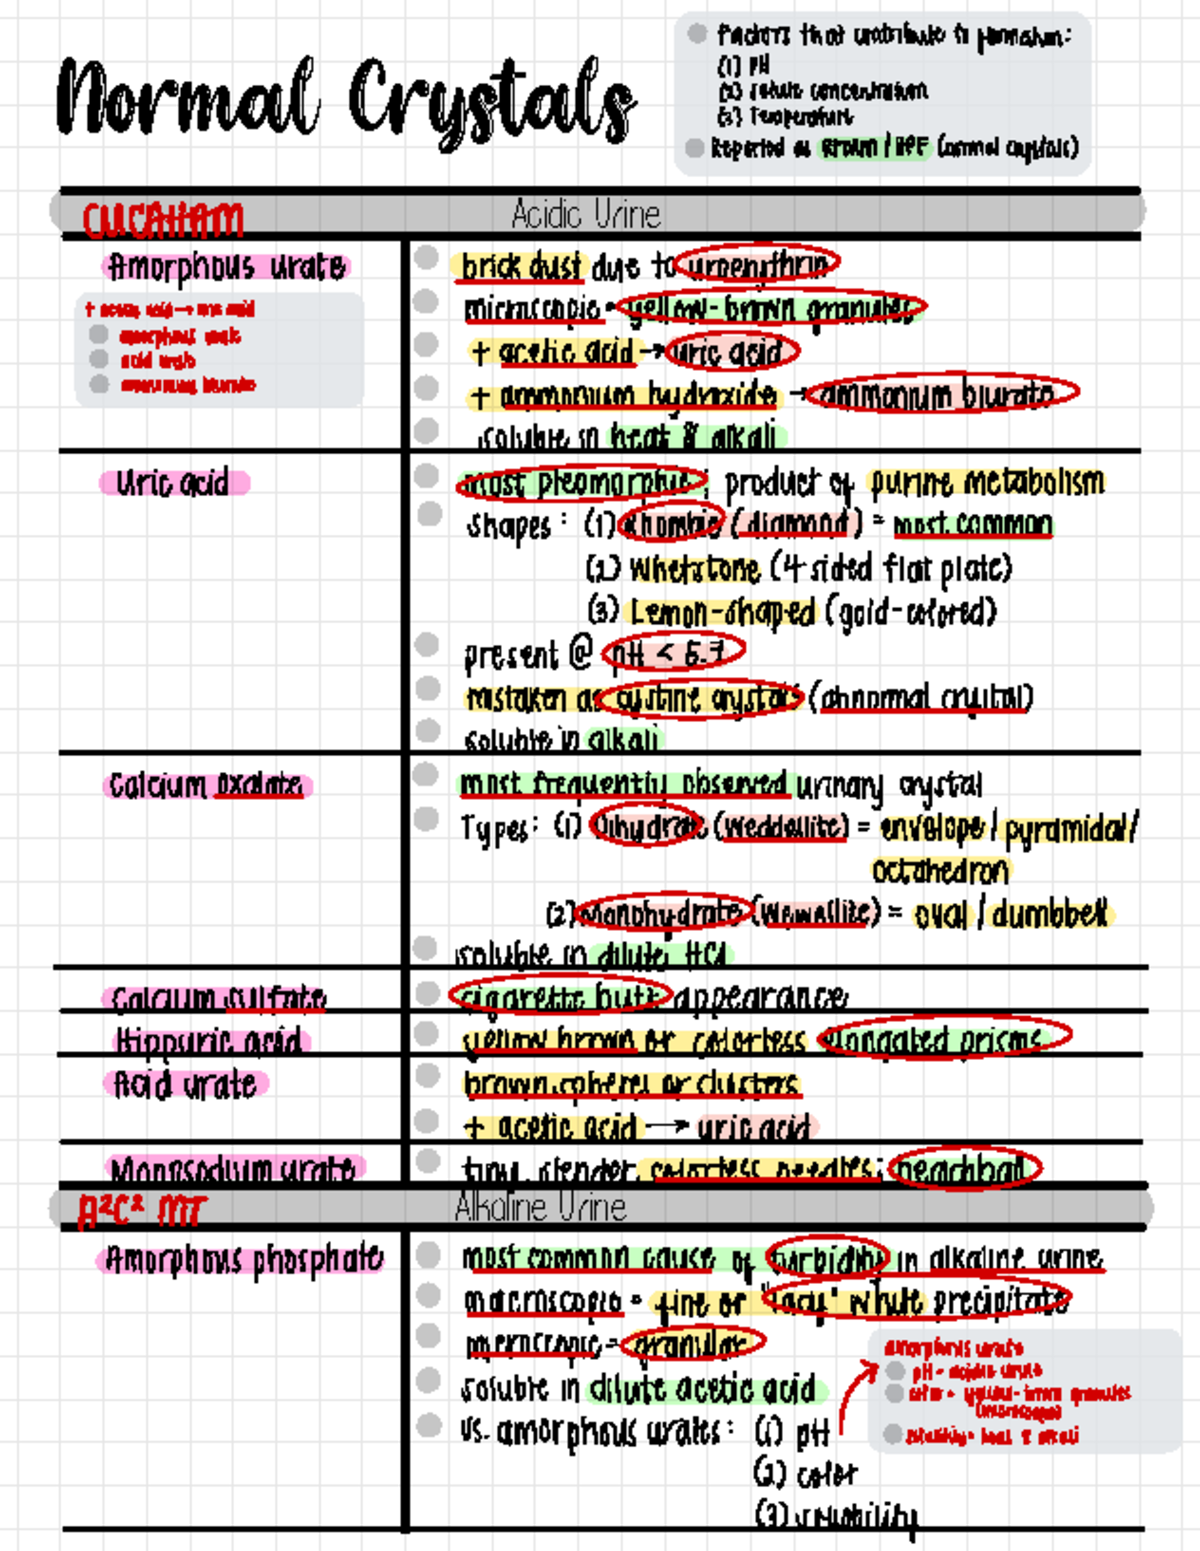 Normal Crystals
Factors that contribute to formation:
(1) pH
(2) solute concentration
(3) Temperature
Reported as RFUMI / HPF (normal crystals)
CUCAHAM
Acidic Urine
Amorphous urate
+ acetic acid → uric acid
amorphous urate
acid urate
ammonium biurate
brick dust due to uroerythrin
microscopic = yellow-brown granules
+ acetic acid → uric acid
+ ammonium hydroxide → ammonium biurate
soluble in heat & alkali
Uric acid
most pleomorphic; product of purine metabolism
shapes: (1) Rhombic (diamond) = most common
(2) Whetstone (4 sided flat plate)
(3) Lemon-shaped (gold-colored)
present @ pH < 5.7
mistaken as cystine crystals (abnormal crystal)
soluble in alkali
Calcium oxalate
most frequently observed urinary crystal
Types: (1) Dihydrate (weddellite) = envelope / pyramidal /
octahedron
(2) Monohydrate (wewellite) = oval / dumbbell
soluble in dilute HCl
Calcium sulfate
cigarette butt appearance
Hippuric acid
yellow brown or colorless elongated prisms
Acid urate
brown spheres or clusters
+ acetic acid → uric acid
Monosodium urate
tiny, slender, colorless needles;
A²C² MT
Alkaline Urine
Amorphous phosphate
most common cause of turbidity in alkaline urine
macroscopic = fine or "lacy" white precipitate
microscopic = granular
soluble in dilute acetic acid
vs. amorphous urates: (1) pH
(2) color
(3) solubility
amorphous urate
pH = acidic urate
color = yellow-brown granules
(microscopic)
solubility = heat & alkali